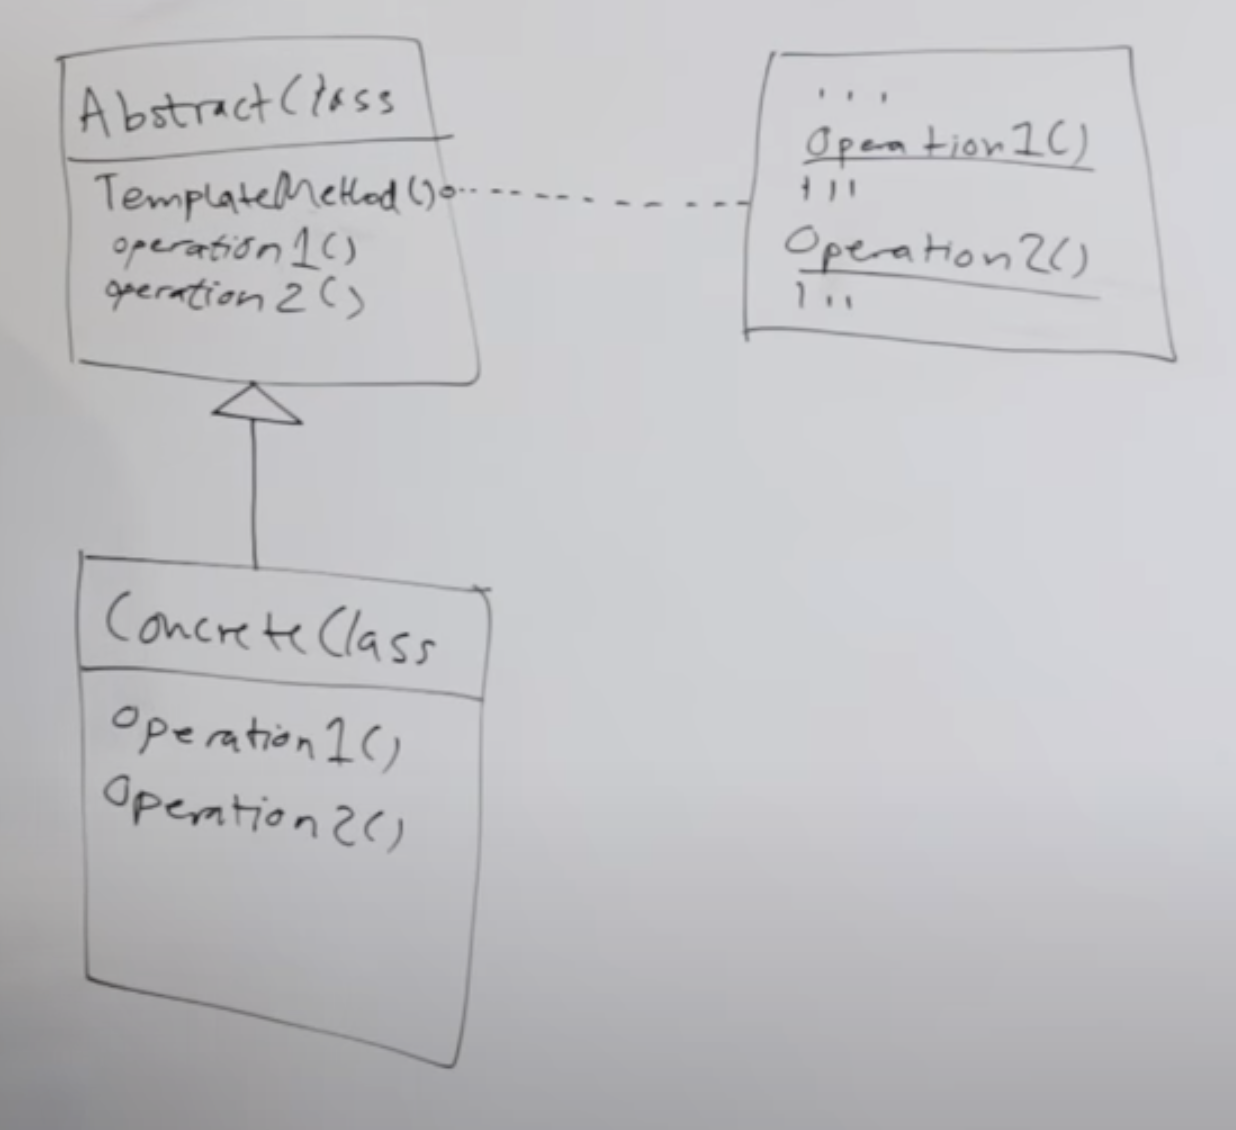 AbstractClass
TemplateMethod()
operation1()
operation2()
...
Operation1()
...
Operation2()
...
ConcreteClass
Operation1()
Operation2()